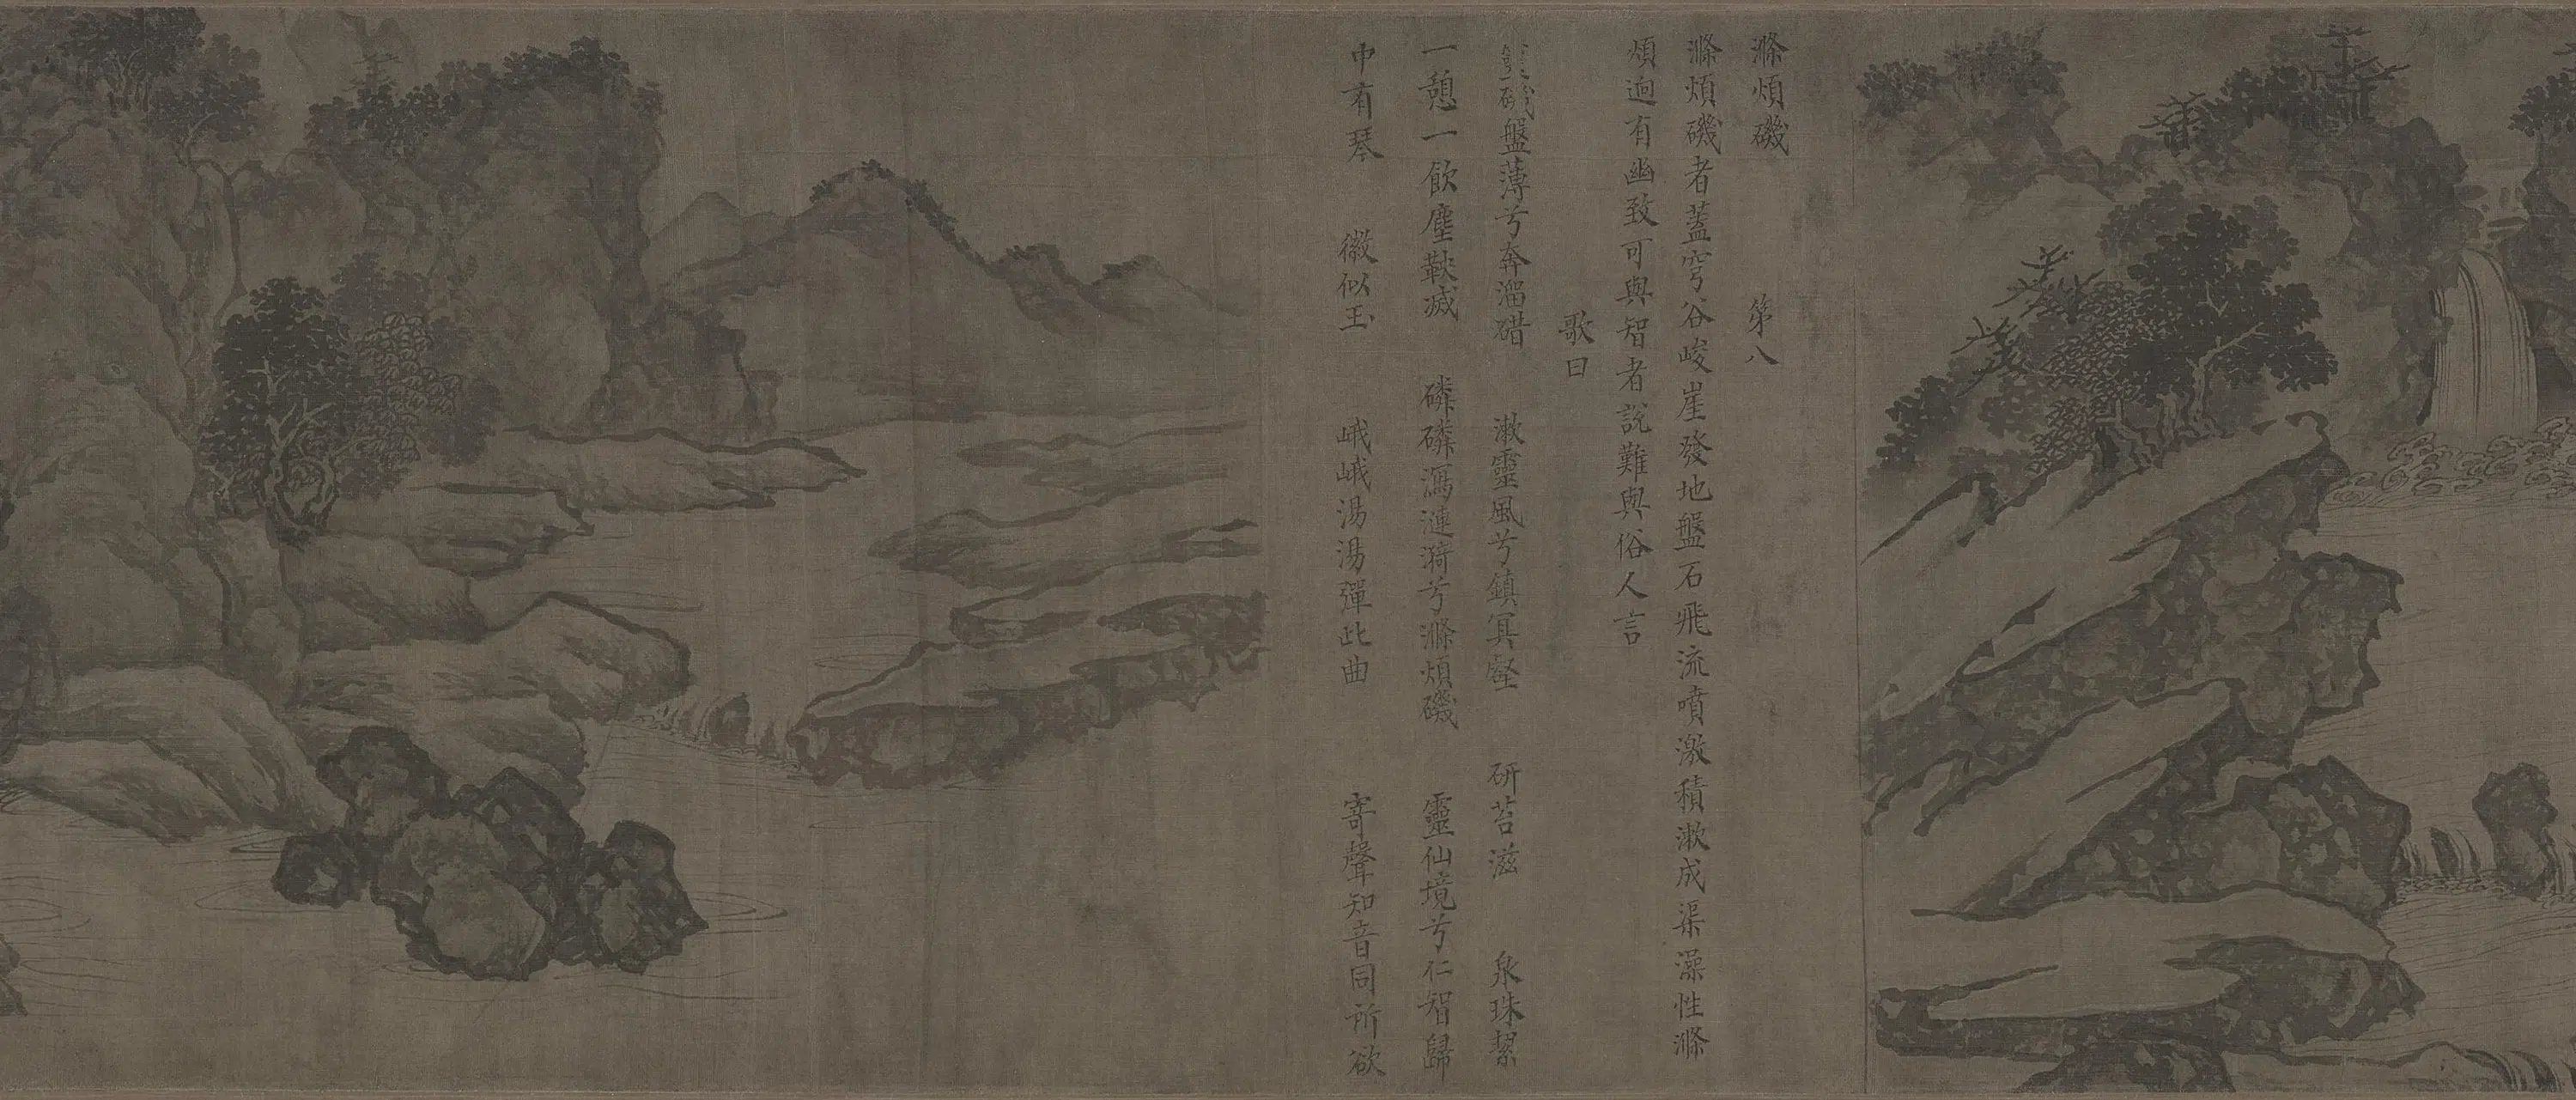 滌煩磯 第八
滌煩磯者蓋穹谷峻崖發地盤石飛流噴激積漱成渠澡性滌
煩迥有幽致可與智者說難與俗人言
歌曰
磯盤薄兮奔溜碏 漱靈風兮鎮冥壑 研苔滋 泉珠絜
一憩一飲塵鞅滅 磷磷瀉漣漪兮滌煩磯 靈仙境兮仁智歸
中有琴 徽似玉 峨峨湯湯彈此曲 寄聲知音同所欲